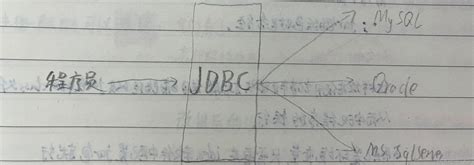 MySQL
程序员 JDBC Oracle
MS Sqlserver